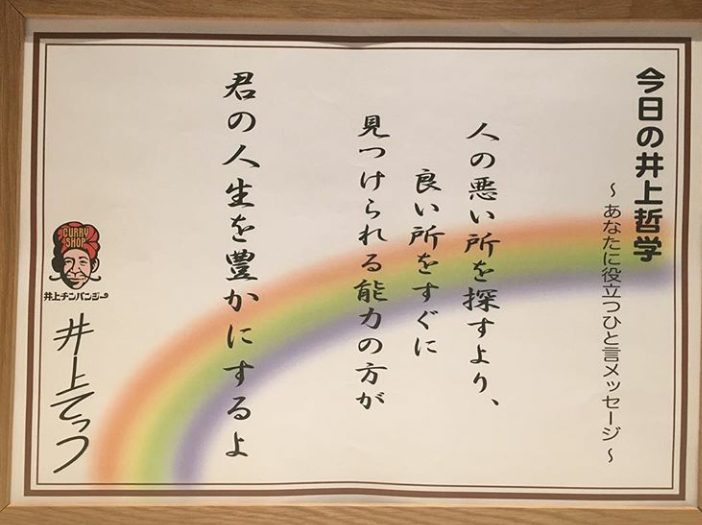 今日の井上哲学
～あなたに役立つひと言メッセージ～
人の悪い所を探すより、
良い所をすぐに
見つけられる能力の方が
君の人生を豊かにするよ
CURRY
SHOP
井上チンパンジー
井上てつ